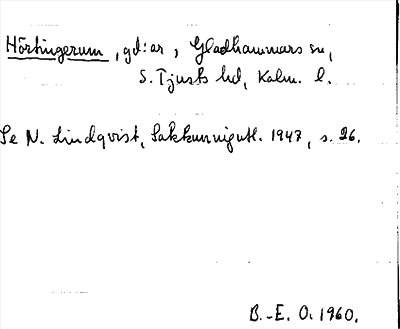 Hörtingerum, gd:ar, Gladhammars sn,
S. Tjusts hd, Kalm. l.
Se N. Lindqvist, Sakkunnigutl. 1947, s. 26.
B.-E. O. 1960.